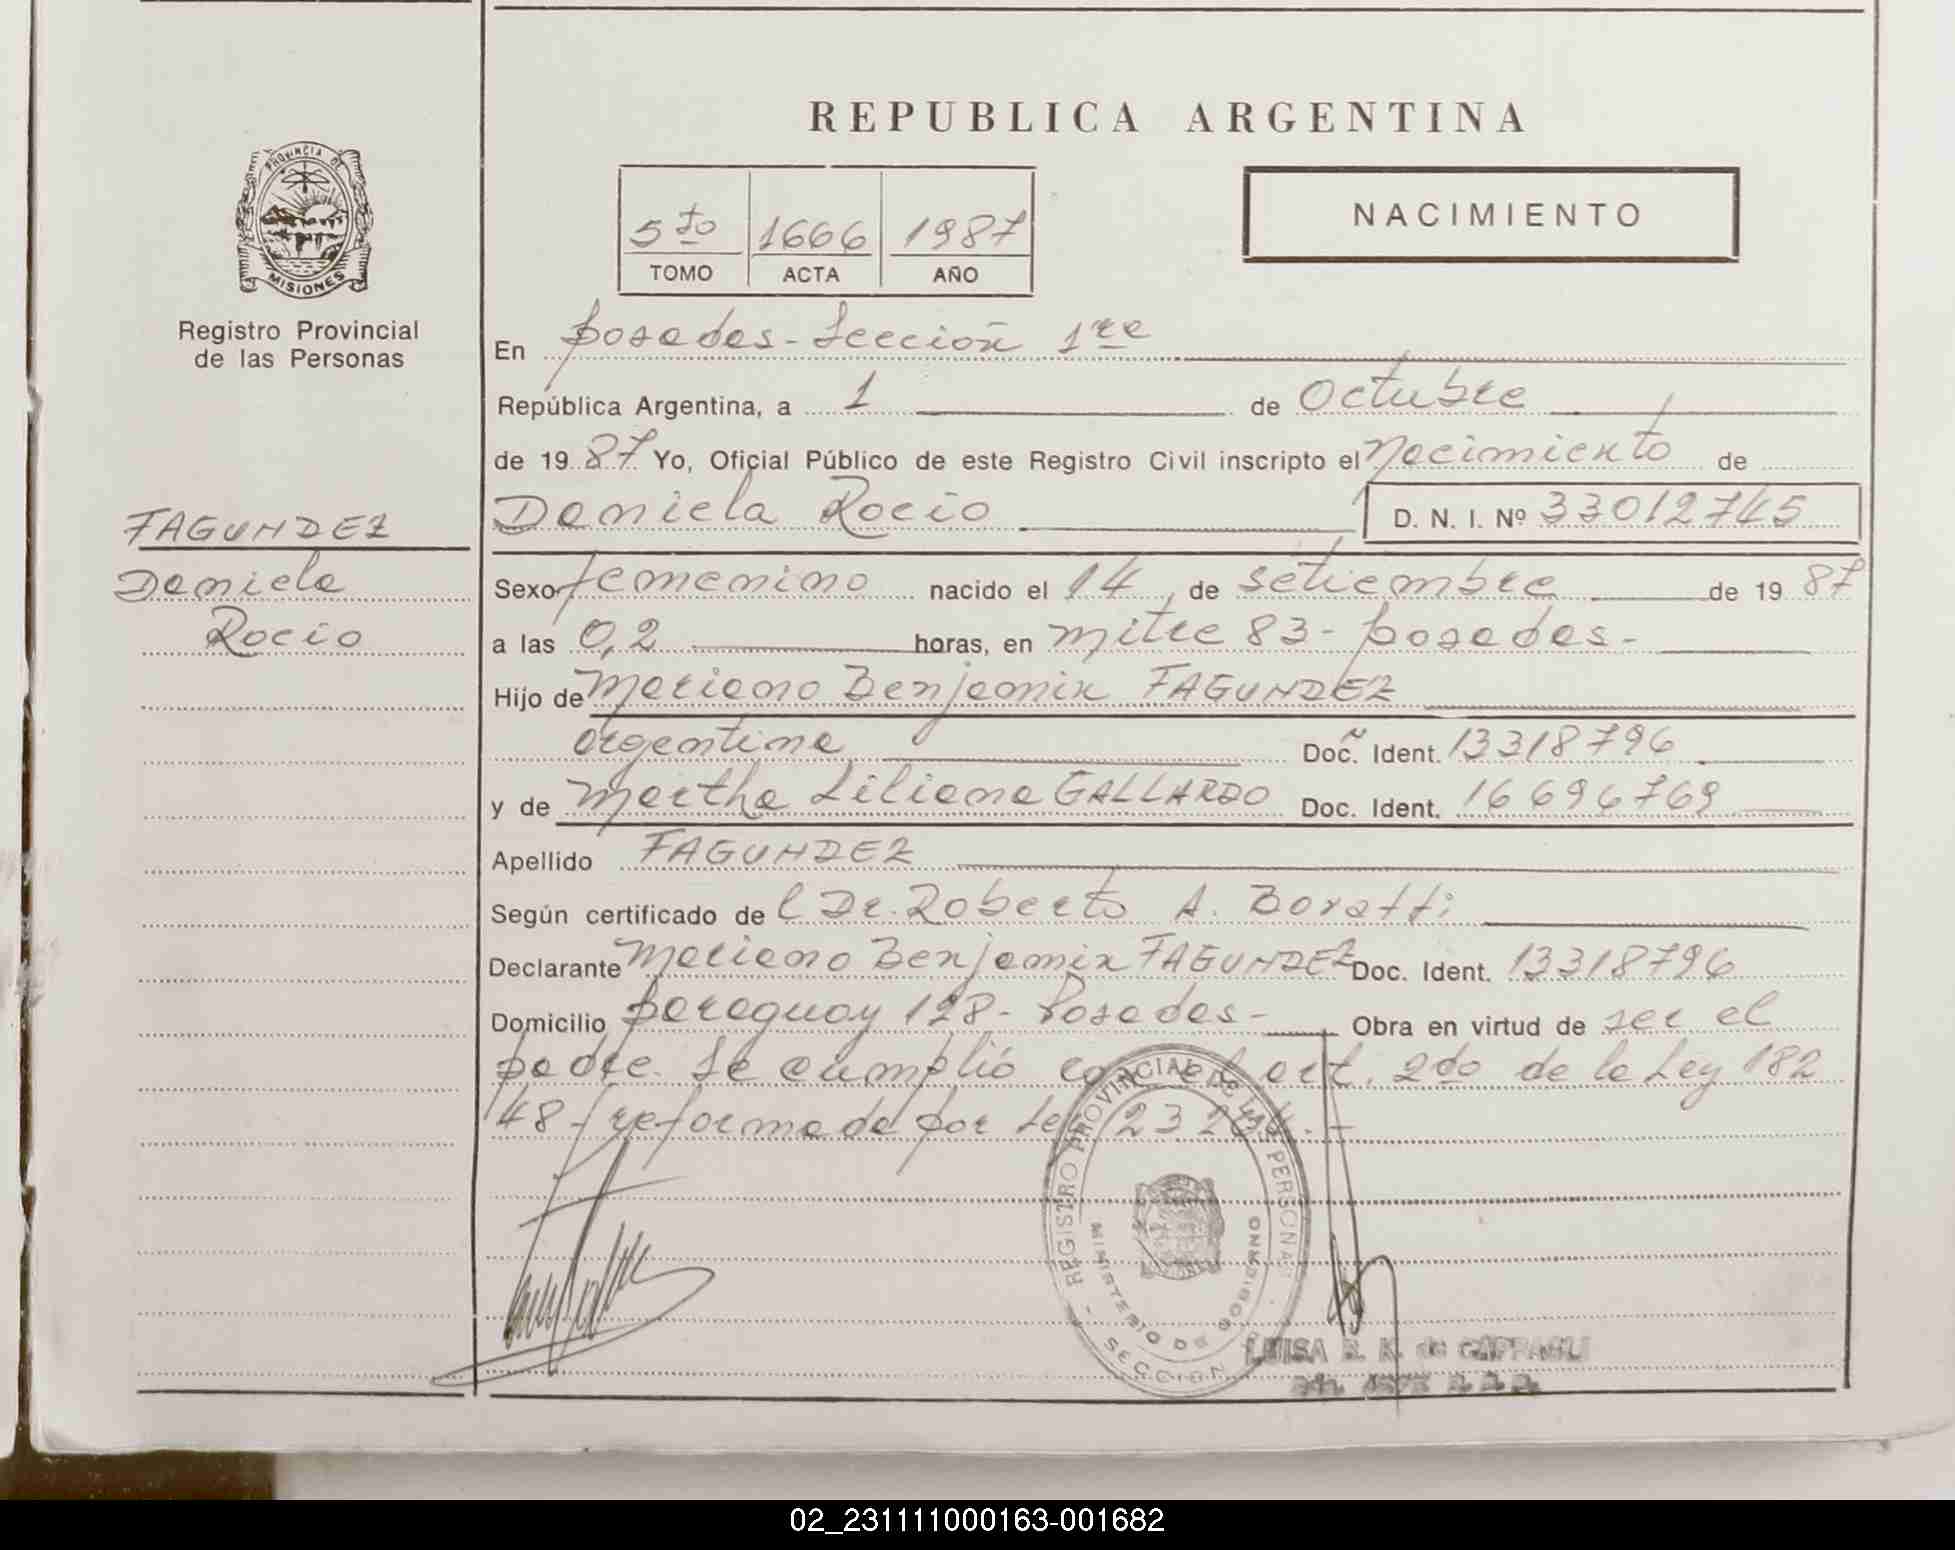 REPUBLICA ARGENTINA
PROVINCIA DE
MISIONES
Registro Provincial
de las Personas
5to 1666 1987
TOMO ACTA AÑO
NACIMIENTO
En Posadas - Sección 1ra
República Argentina, a 1 de Octubre
de 1987 Yo, Oficial Público de este Registro Civil inscripto el Nacimiento de
Daniela Rocio D. N. I. Nº 33012745
FAGUNDEZ
Daniela
Rocio
Sexo femenino nacido el 14 de setiembre de 1987
a las 0,2 horas, en Mitre 83 - Posadas -
Hijo de Mariano Benjamin FAGUNDEZ
argentina Doc. Ident. 13318796
y de Martha Liliana GALLARDO Doc. Ident. 16696769
Apellido FAGUNDEZ
Según certificado de l Dr. Roberto A.
Declarante Mariano Benjamin FAGUNDEZ Doc. Ident. 13318796
Domicilio Paraguay 128 - Posadas - Obra en virtud de ser el
padre. Se cumplió con el art. 2do de la Ley 182
48 - reformada por Ley 23
REGISTRO PROVINCIAL DE LAS PERSONAS
MINISTERIO DE GOBIERNO
SECCION
LUISA E. K. de
02_231111000163-001682